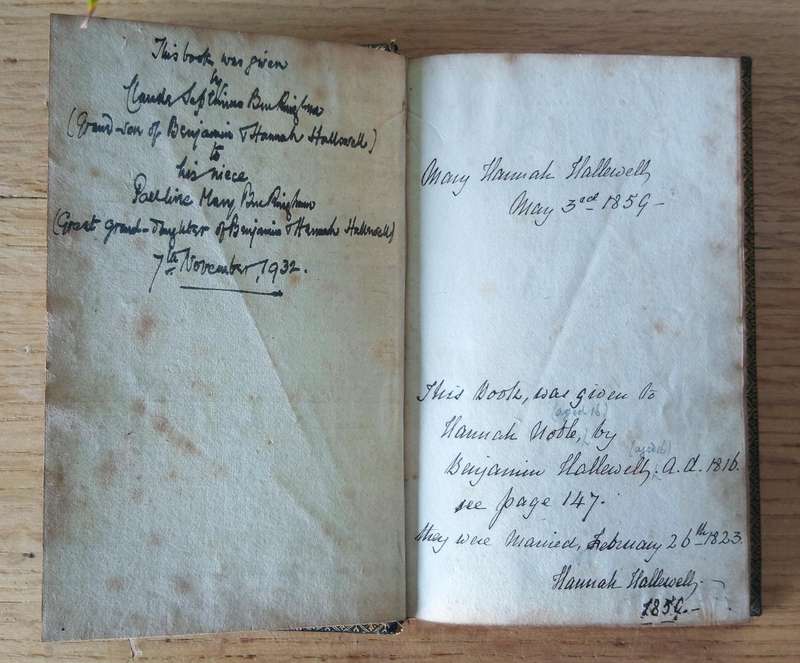 This book was given
by
Claude Septimus Buckingham
(Grand-son of Benjamin & Hannah Hallewell)
to
his niece
Pauline Mary Buckingham
(Great grand-daughter of Benjamin & Hannah Hallewell)
7th November, 1932.
Mary Hannah Hallewell
May 3rd 1859 -
This Book, was given to
(aged 16)
Hannah Noble, by
(aged 16)
Benjamin Hallewell, A.D. 1816.
see page 147.
they were Married, February 26th 1823.
Hannah Hallewell -
1859. -